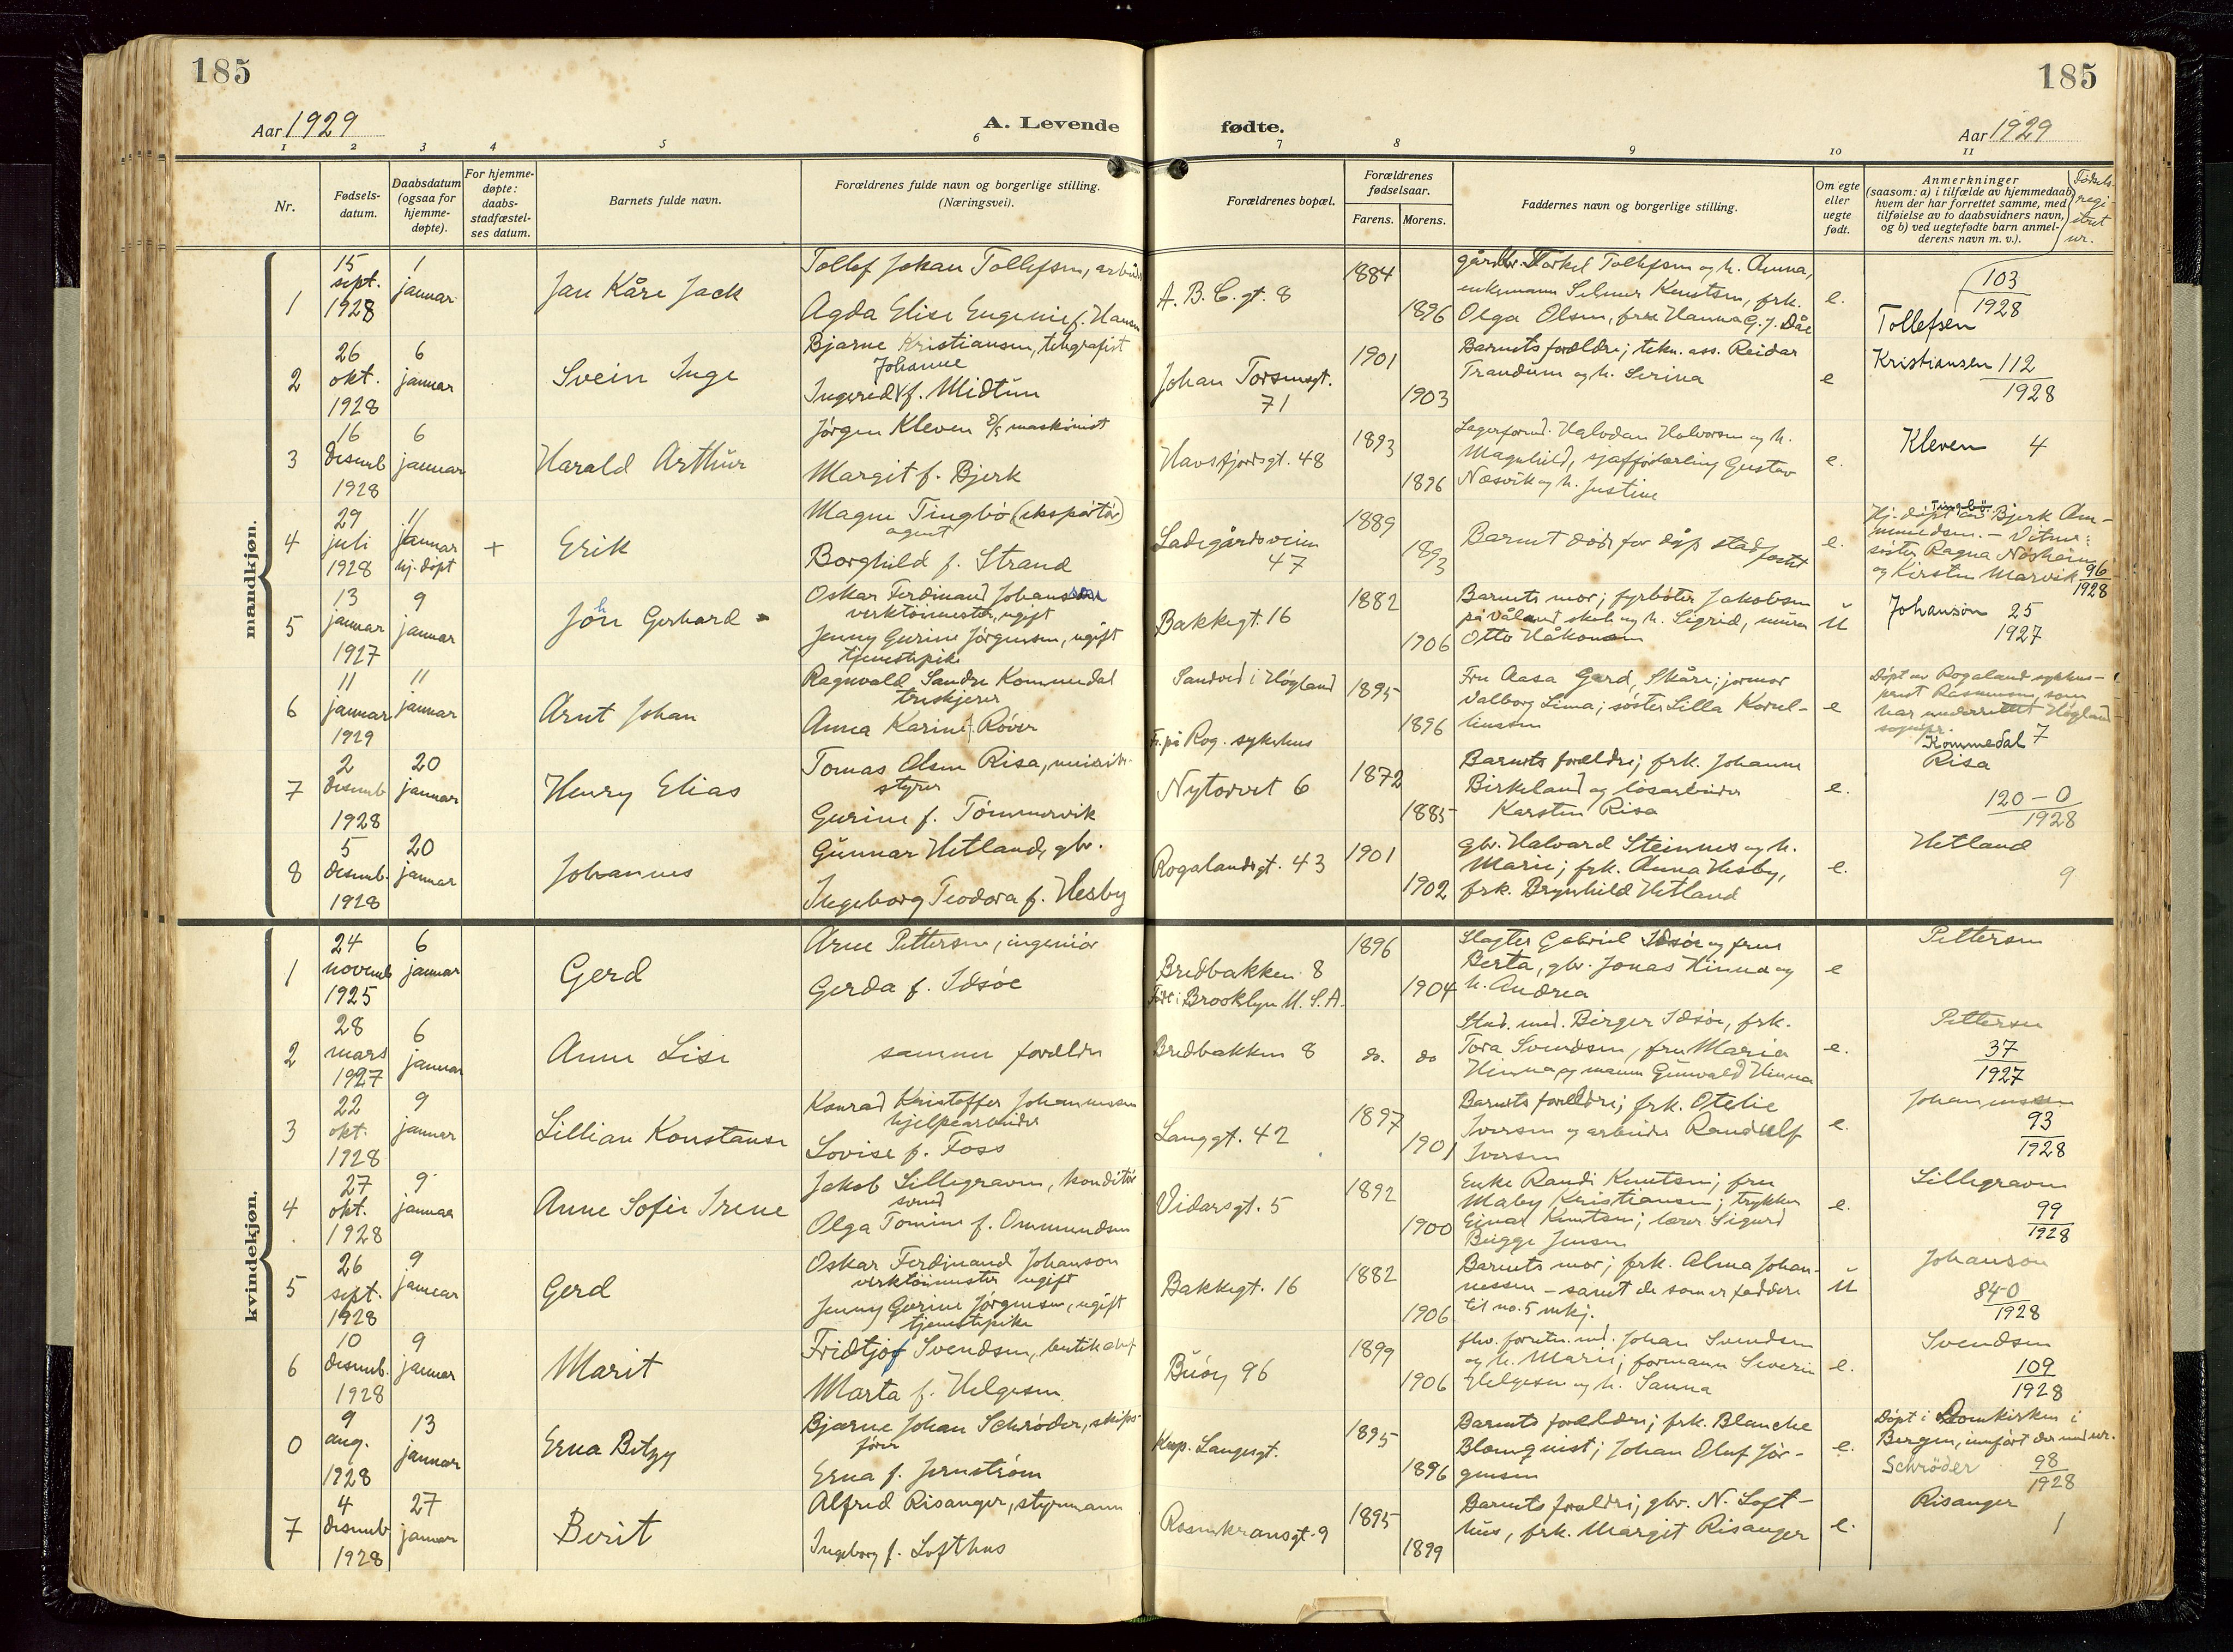 185
185
Aar 1929
A. Levende
fødte.
Aar 1929
1 2 3 4 5 6 7 8 9 10 11
Nr.
Fødsels-
datum.
Daabsdatum
(ogsaa for
hjemme-
døpte).
For hjemme-
døpte:
daabs-
stadfæstel-
ses datum.
Barnets fulde navn.
Forældrenes fulde navn og borgerlige stilling.
(Næringsvei).
Forældrenes bopæl.
Forældrenes
fødselsaar.
Farens. Morens.
Faddernes navn og borgerlige stilling.
Om egte
eller
uegte
født.
Anmerkninger
(saasom: a) i tilfælde av hjemmedaab,
hvem der har forrettet samme, med
tilføielse av to daabsvidners navn,
og b) ved uegtefødte barn anmel-
derens navn m. v.).
Fødsels-
regi-
stret
nr.
mandkjøn.
1
15
sept.
1928
1
januar
Jan Kåre Jack
Tollef Johan Tollefsen, arbeider
Agda Elise Eugenie f. Hansen
A. B. C. gt. 8
1884
1896
Torkel Tollefsen og h. Anna,
enkemann Selmer Knutsen, frk.
Olga Olsen, frk Hanna G. J. Dåe
e.
103
1928
Tollefsen
2
26
okt.
1928
6
januar
Svein Inge
Bjarne Kristiansen, telegrafist
Johanne
Ingerid f. Midtun
Johan Torsensgt.
71
1901
1903
Barnets foreldre; tekn. ass. Reidar
Trandum og h. Serina
e
Kristiansen 112
1928
3
16
desemb
1928
6
januar
Harald Arthur
Jørgen Kleven D/S maskinist
Margit f. Bjerk
Havsfjordsgt. 48
1893
1896
Lagerformd. Halvdan Halvorsen og h.
Magnhild, sjafførlærling Gustav
Næsvik og h. Justine
e.
Kleven 4
4
29
juli
1928
11
januar
hj. døpt
+
Erik
Magne Tingbø (eksportør)
agent
Borghild f. Strand
Ladegårdsveien
47
1889
1893
Barnet døde før dåp stadfestet
e.
Tingbø.
Hj. døpt av Bjerk Om-
mundsen. - Vitner:
søster Ragna Nosheim
og Kirsten Marvik 96
1928
5
13
januar
1927
9
januar
John Gerhard
Oskar Ferdinand Johanson
verktøimester, ugift
Jenny Gurine Jørgensen, ugift
tjenestepike
Bakkegt. 16
1882
1906
Barnets mor; fyrbøter Jakobsen
på Våland skole og h. Sigrid, murer
Otto Håkonsen
u
Johanson 25
1927
6
11
januar
1929
11
januar
Arnt Johan
Ragnvald Sandre Kommedal
treskjerer
Anna Karine f Røver
Sandved i Høgland
F. på Rog. sykehus
1895
1896
Fru Aasa Gard, Skåre; jormor
Valborg Lima; søster Lilla Kornel-
liussen
e
Døpt av Rogaland sykehus-
prest Rasmussen, som
har underrettet Høgland
sognepr.
Kommedal 7
7
2
desemb
1928
20
januar
Henry Elias
Tomas Olsen Risa, minist.
styrer
Gurine f. Tømmervik
Nytorvet 6
1872
1885
Barnets foreldre; frk. Johanne
Birkeland og løsarbeider
Karsten Risa
e.
Risa
120 - 0
1928
8
5
desemb.
1928
20
januar
Johannes
Gunnar Hetland, gbr.
Ingeborg Teodora f. Hesby
Rogalandsgt. 43
1901
1902
gbr. Halvard Steinnes og h.
Marie; frk. Anna Hesby,
frk. Brynhild Hetland
e.
Hetland
9
kvindekjøn.
1
24
novemb
1925
6
januar
Gerd
Arne Pettersen, ingeniør
Gerda f. Idsøe
Bredbakken 8
Født i Brooklyn U. S. A.
1896
1904
Slagter Gabriel Idsøe og frue
Berta, gbr. Jonas Hinna og
h. Andrea
e
Pettersen
2
28
mars
1927
6
januar
Anne Lise
samme foreldre
Bredbakken 8
do.
do
Stud. med. Birger Idsøe, frk.
Tora Svendsen, fru Maria
Hinna og mann Gunvald Hinna
e.
Pettersen
37
1927
3
22
okt.
1928
9
januar
Lillian Konstanse
Konrad Kristoffer Johannessen
hjelpearbeider
Lovise f. Foss
Langgt. 42
1897
1901
Barnets foreldre; frk. Otelie
Iversen og arbeider Randulf
Iversen
e.
Johannessen
93
1928
4
27
okt.
1928
9
januar
Anne Sofie Irene
Jakob Lillegraven, konditor
svend
Olga Tomine f. Ommundsen
Vidarsgt. 5
1892
1900
Enke Randi Knutsen; fru
Maby Kristiansen; trykker
Einar Knutsen; lærer Sigurd
Bugge Jensen
e.
Lillegraven
99
1928
5
26
sept.
1928
9
januar
Gerd
Oskar Ferdinand Johanson
verktøimester ugift
Jenny Gurine Jørgensen, ugift
tjenestepike
Bakkegt. 16
1882
1906
Barnets mor; frk. Alma Johan-
nessen - samt de som er faddere
til no. 5 mkj.
u
Johanson
84-0
1928
6
10
desemb.
1928
9
januar
Marit
Fridtjof Svendsen, butikchef
Marta f. Helgesen
Buøy 96
1899
1906
fhv. forretn.md. Johan Svendsen
og h. Marie; formann Severin
Helgesen og h. Sanna
e.
Svendsen
109
1928
0
9
aug.
1928
13
januar
Erna Betzy
Bjarne Johan Schrøder, skips-
fører
Erna f. Jernstrøm
Kap. Langesgt.
1895
1896
Barnets foreldre; frk. Blanche
Blomquist; Johan Oluf Jør-
gensen
e.
Døpt i Domkirken i
Bergen, innført der med nr.
Schrøder 98
1928
7
4
desemb
1928
27
januar
Berit
Alfred Risanger, styrmann
Ingeborg f. Lofthus
Rosenkransgt. 9
1895
1899
Barnets foreldre; gbr. N. Loft-
hus, frk. Margit Risanger
e.
Risanger
1